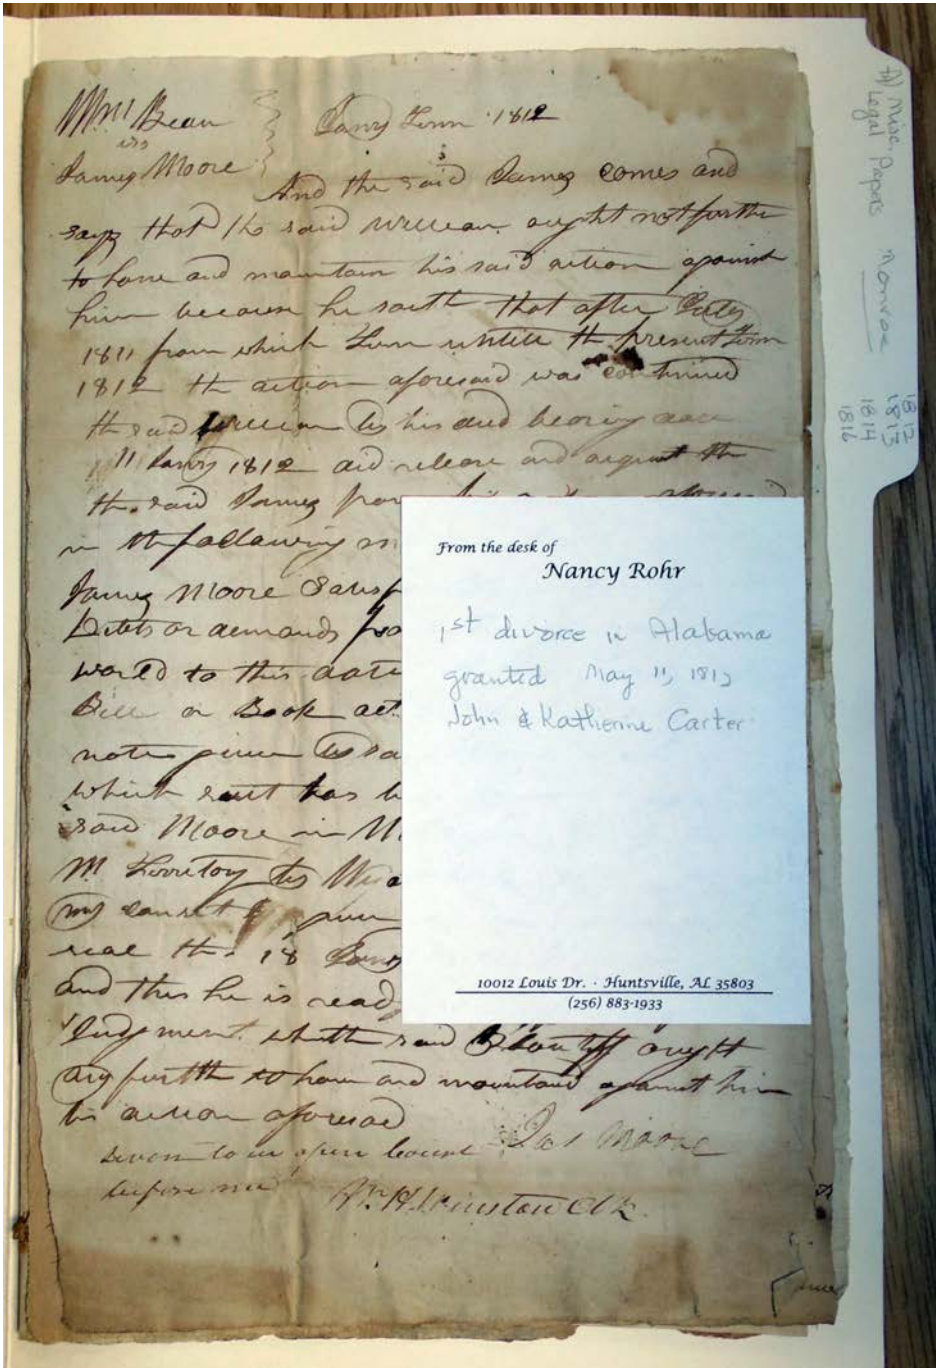 Wm Bean
vs
James Moore
Jany Term 1812
And the said James comes and
says that the said William ought not further
to have and maintain his said action against
him because he saith that after July
1811 from which Term untill the present Term
1812 the action aforesaid was continued
the said William by his deed bearing date
11 Jany 1812 did release and acquit the
the said James from
in the following
James Moore
Debts or demands
world to this date
Bill or Book
note given by
which suit has
said Moore in
M. Territory by
my consent given
seal the 18 Jany
and this he is ready
Judgment whether said Plaintiff ought
any further to have and maintain against him
his action aforesaid
Jas Moore
Sworn to in open Court
before me
W. H. Winston Clk.
From the desk of
Nancy Rohr
1st divorce in Alabama
granted May 11, 1813
John & Katherine Carter
10012 Louis Dr. · Huntsville, AL 35803
(256) 883-1933
Misc.
Legal Papers
Monroe
1812
1813
1814
1816